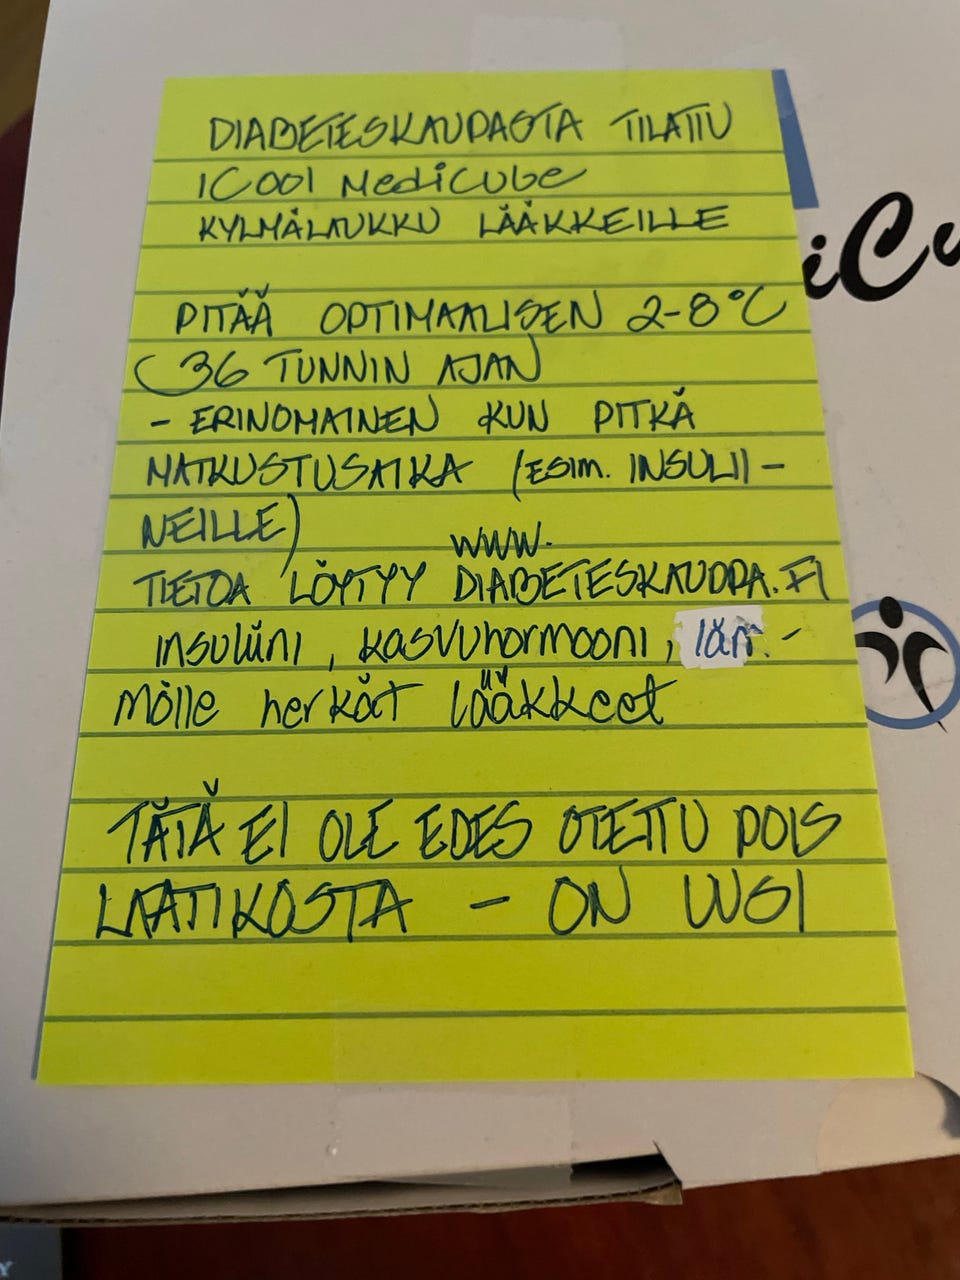 DIABETESKAUPASTA TILATTU
iCool MediCube
KYLMÄLAUKKU LÄÄKKEILLE
PITÄÄ OPTIMAALISEN 2-8°C
36 TUNNIN AJAN
- ERINOMAINEN KUN PITKÄ
MATKUSTUSAIKA (ESIM. INSULII-
NEILLE)
WWW.
TIETOA LÖYTYY DIABETESKAUPPA.FI
insuliini, kasvuhormooni, läm-
mölle herkät lääkkeet
TÄTÄ EI OLE EDES OTETTU POIS
LAATIKOSTA - ON UUSI
iCu
Y